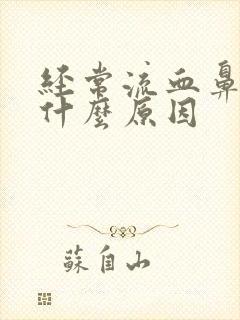 经常流血鼻
什麼原因
蘇自山